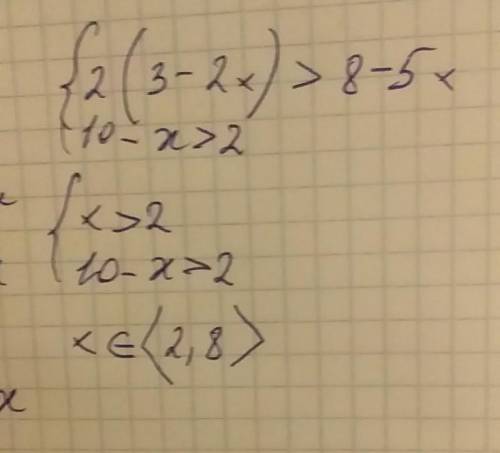 { 2(3-2x) > 8-5x
10-x>2
{ x>2
10-x>2
x∈⟨2,8⟩
x